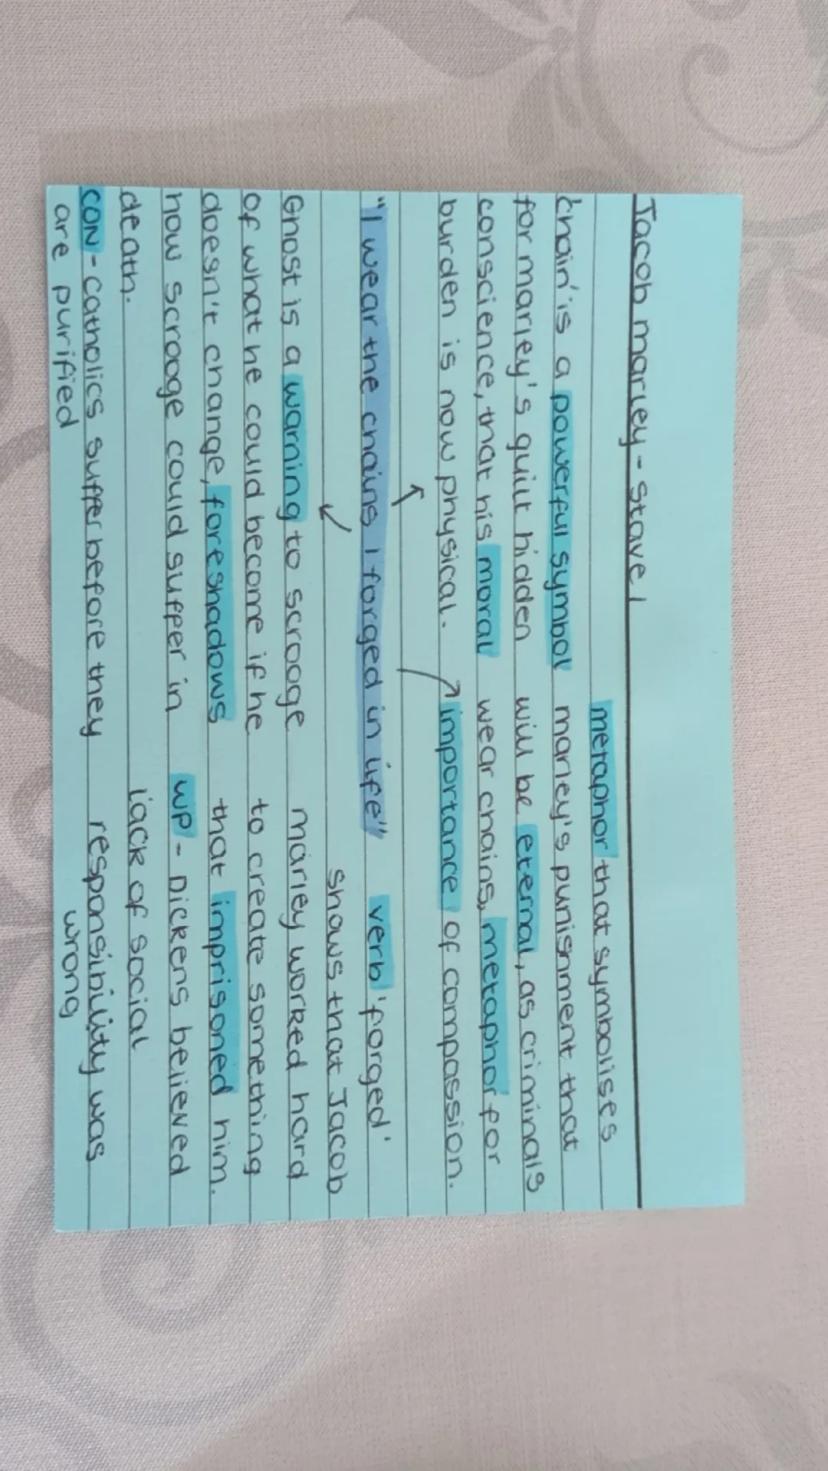 Jacob marley - Stave 1
metaphor that symbolises
'chain' is a powerful symbol marley's punishment that
for marley's guilt hidden will be eternal, as criminals
conscience, that his moral wear chains, metaphor for
burden is now physical. importance of compassion.
"I wear the chains I forged in life" verb 'forged'
shows that Jacob
Ghost is a warning to scrooge marley worked hard
of what he could become if he to create something
doesn't change, foreshadows that imprisoned him.
how scrooge could suffer in WP - Dickens believed
death. lack of social
CON - catholics suffer before they responsibility was
are purified wrong